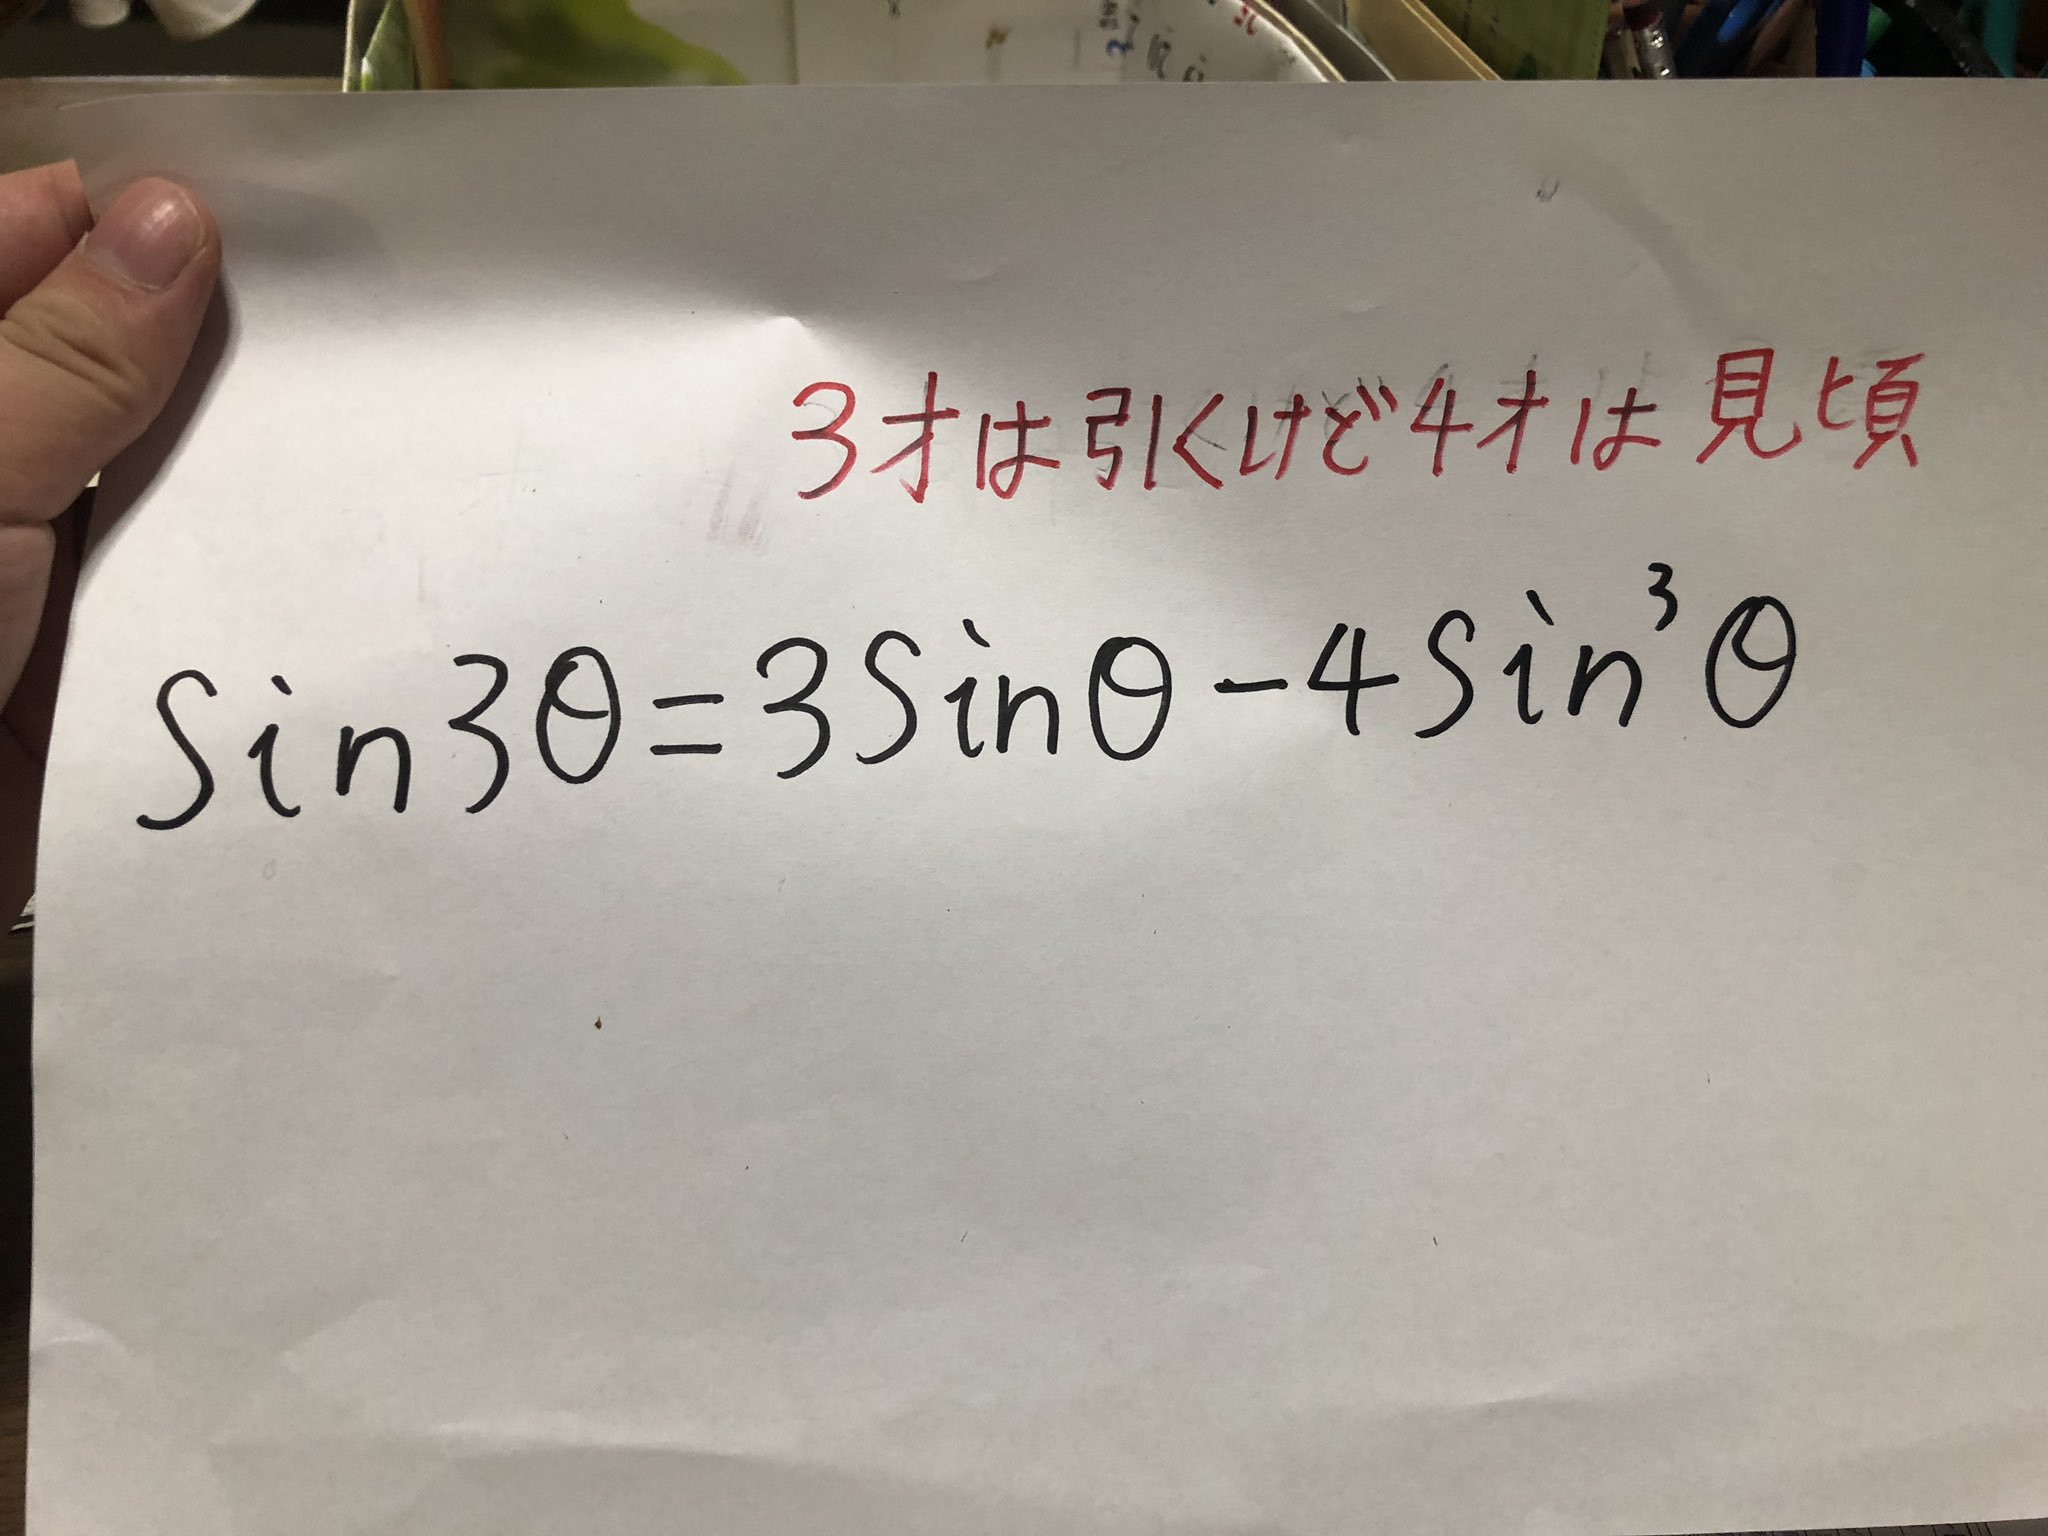 3才は引くけど4才は見頃
sin3θ=3sinθ-4sin³θ